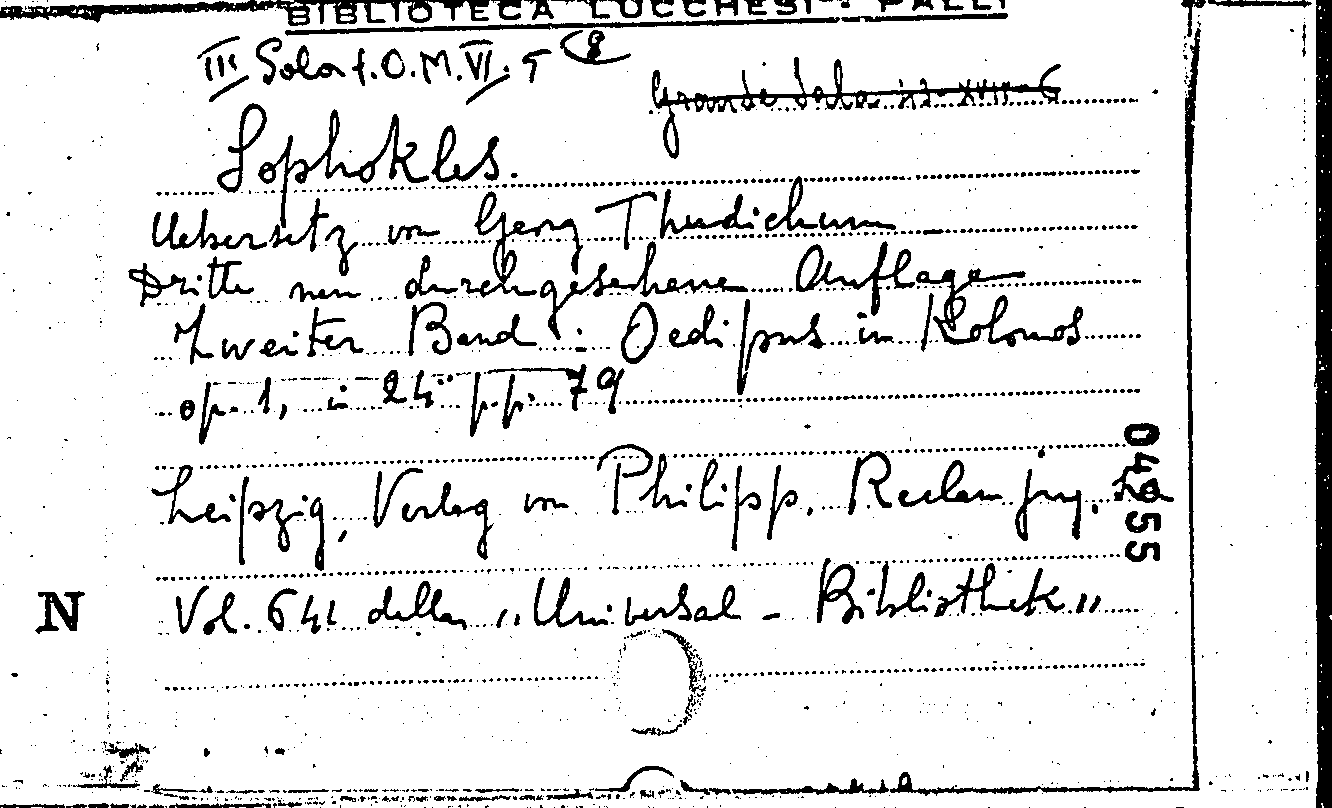 BIBLIOTECA LUCCHESI - PALLI
III Sala f. O. M. VI. 5 (8
Grande Sala XVII - 6
Sophokles.
Uebersetz von Georg Thudichum
Dritte neu durchgesehene Auflage
Zweiter Band : Oedipus in Kolonos
op. 1, in 24° pp. 79
Leipzig, Verlag von Philipp. Reclam jun.
04955
N
Vol. 641 della „Universal - Bibliothek"